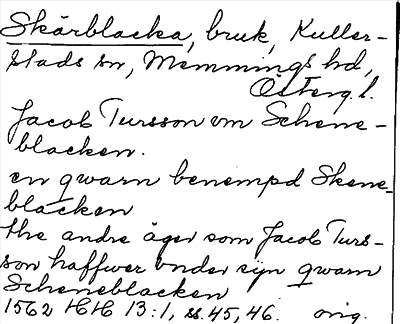 Skärblacka, bruk, Kuller-
stads sn, Memmings hd,
Österg. l.
Jacob Tursson vm Schene-
blacken.
en qwarn benempd Skene-
blacken
the andre äger som Jacob Turs-
son haffwer vnder sijn qwarn
Scheneblacken
1562 HH 13:1, ss. 45, 46. orig.